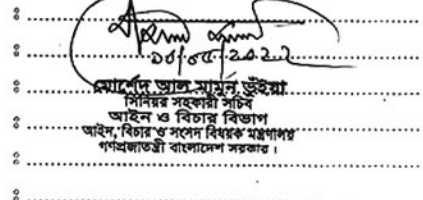 মোর্শেদ আল মামুন ভূঁইয়া
সিনিয়র সহকারী সচিব
আইন ও বিচার বিভাগ
আইন, বিচার ও সংসদ বিষয়ক মন্ত্রণালয়
গণপ্রজাতন্ত্রী বাংলাদেশ সরকার।